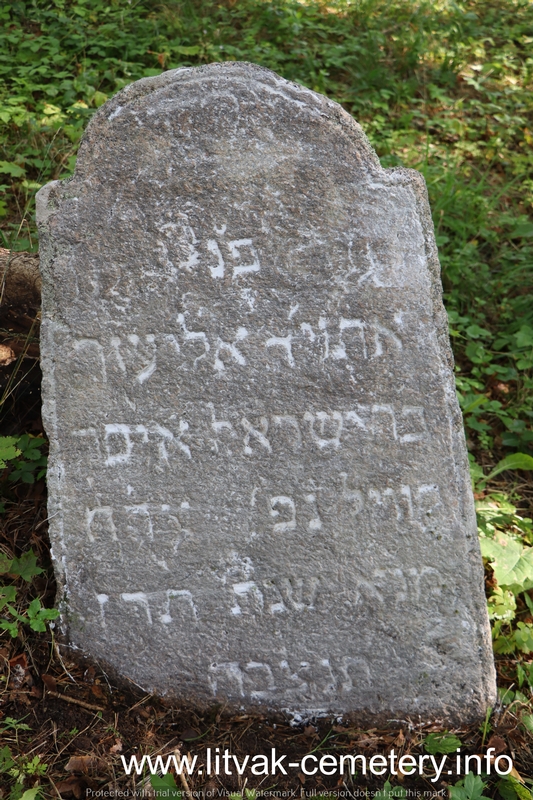 פנ
א'תוי'ד אליעזר
בר ישראל איסר
נפ'
מנא שנת תרן
תנצבה
www.litvak-cemetery.info
Protected with trial version of Visual Watermark. Full version doesn't put this mark.